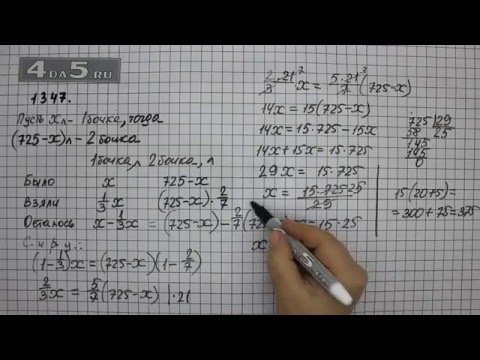 4DA5.RU
1347.
Пусть x л – 1 бочка, тогда
(725-x) л – 2 бочка
1 бочка, л 2 бочка, л
Было x 725-x
Взяли 1/3 x (725-x)·2/7
Осталось x - 1/3 x = (725-x) - 2/7 (72
С и в у:
(1-1/3)x = (725-x)(1-2/7)
2/3 x = 5/7 (725-x) |·21
2·21⁷/3 x = 5·21³/7 (725-x)
14x = 15(725-x)
14x = 15·725-15x
14x+15x = 15·725
29x = 15·725
x = 15·725 25/29
x = 15·25
x
725 |29
58 25
145
145
0
15(20+5)=
=300+75=375